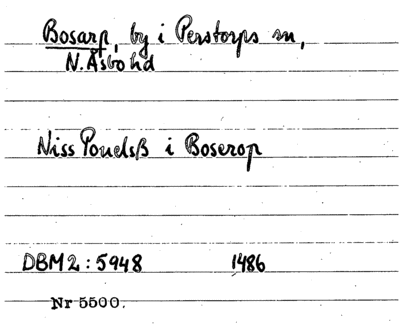 Bosarp, by i Perstorps sn,
N. Åsbo hd
Niss Pouelsß i Boserop
DBM 2 : 5948 1486
Nr 5500.